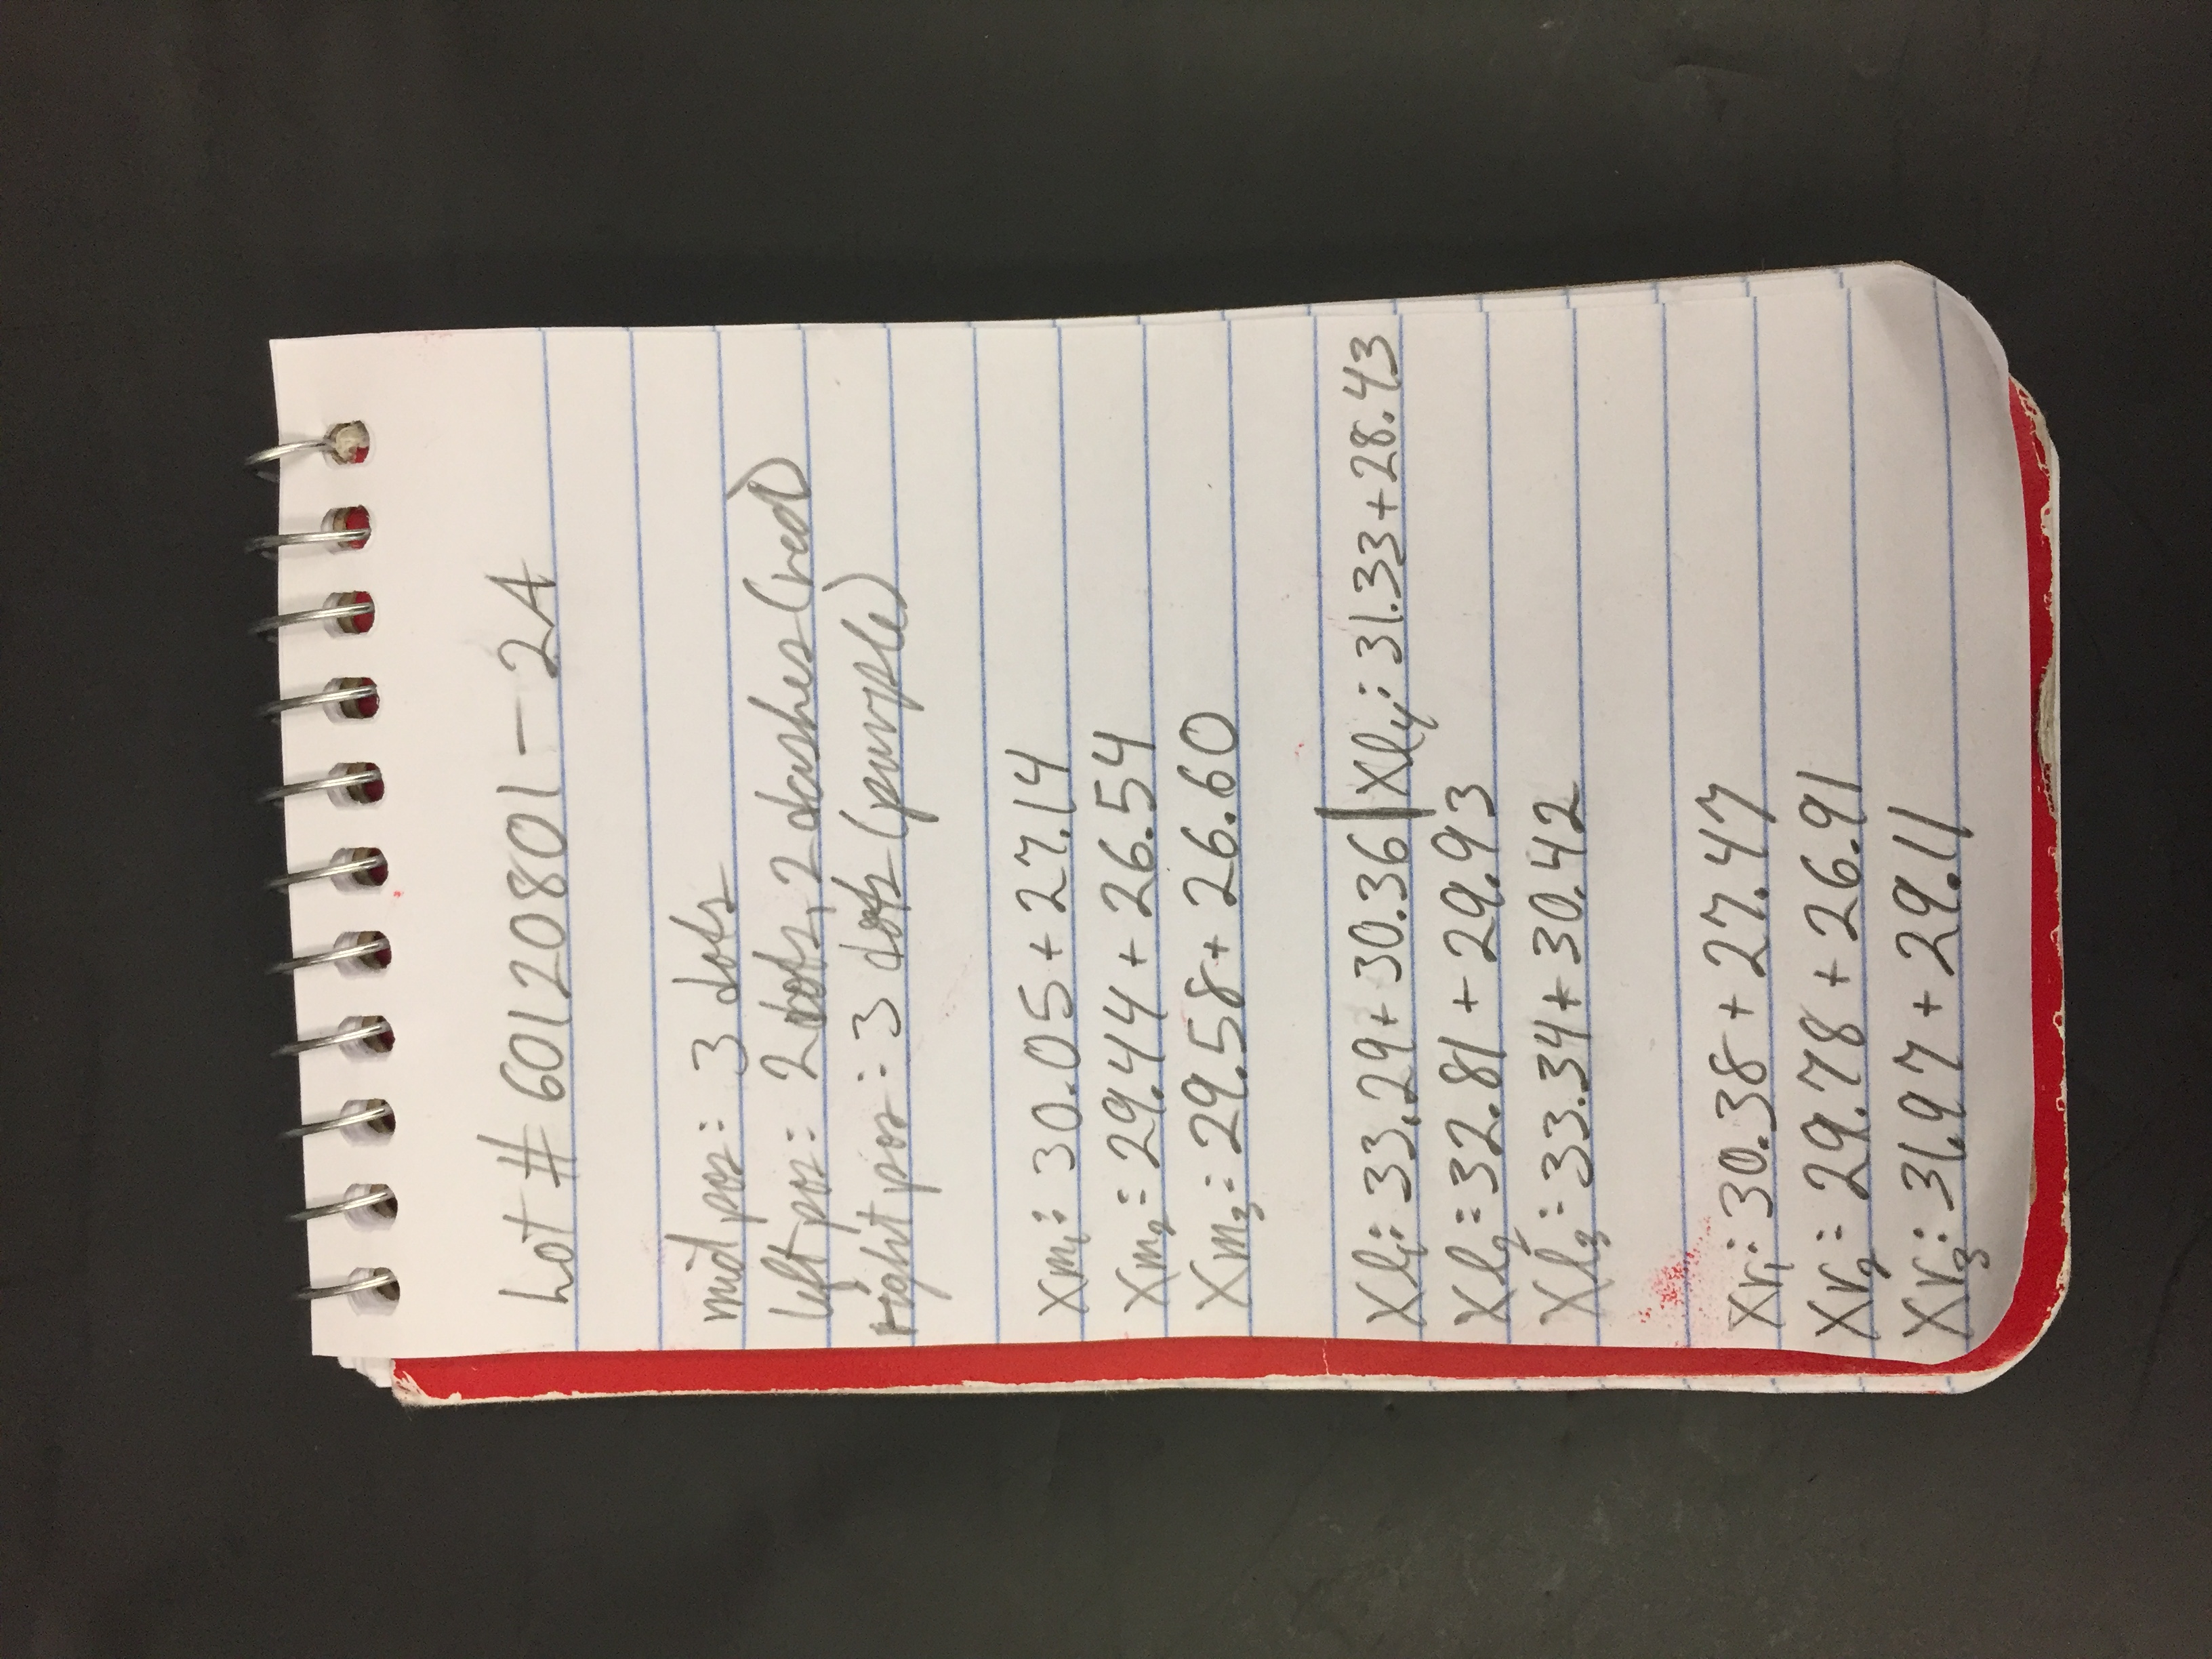 Lot # 60120801 - 2A
mid pos: 3 dots
left pos: 2 dots, 2 dashes (red)
right pos: 3 dots (purple)
Xm₁: 30.05 + 27.14
Xm₂: 29.44 + 26.54
Xm₃: 29.58 + 26.60
Xl₁: 33.29 + 30.36 | Xl₄: 31.33 + 28.43
Xl₂: 32.81 + 29.93
Xl₃: 33.34 + 30.42
Xr₁: 30.38 + 27.47
Xr₂: 29.78 + 26.91
Xr₃: 31.97 + 29.11